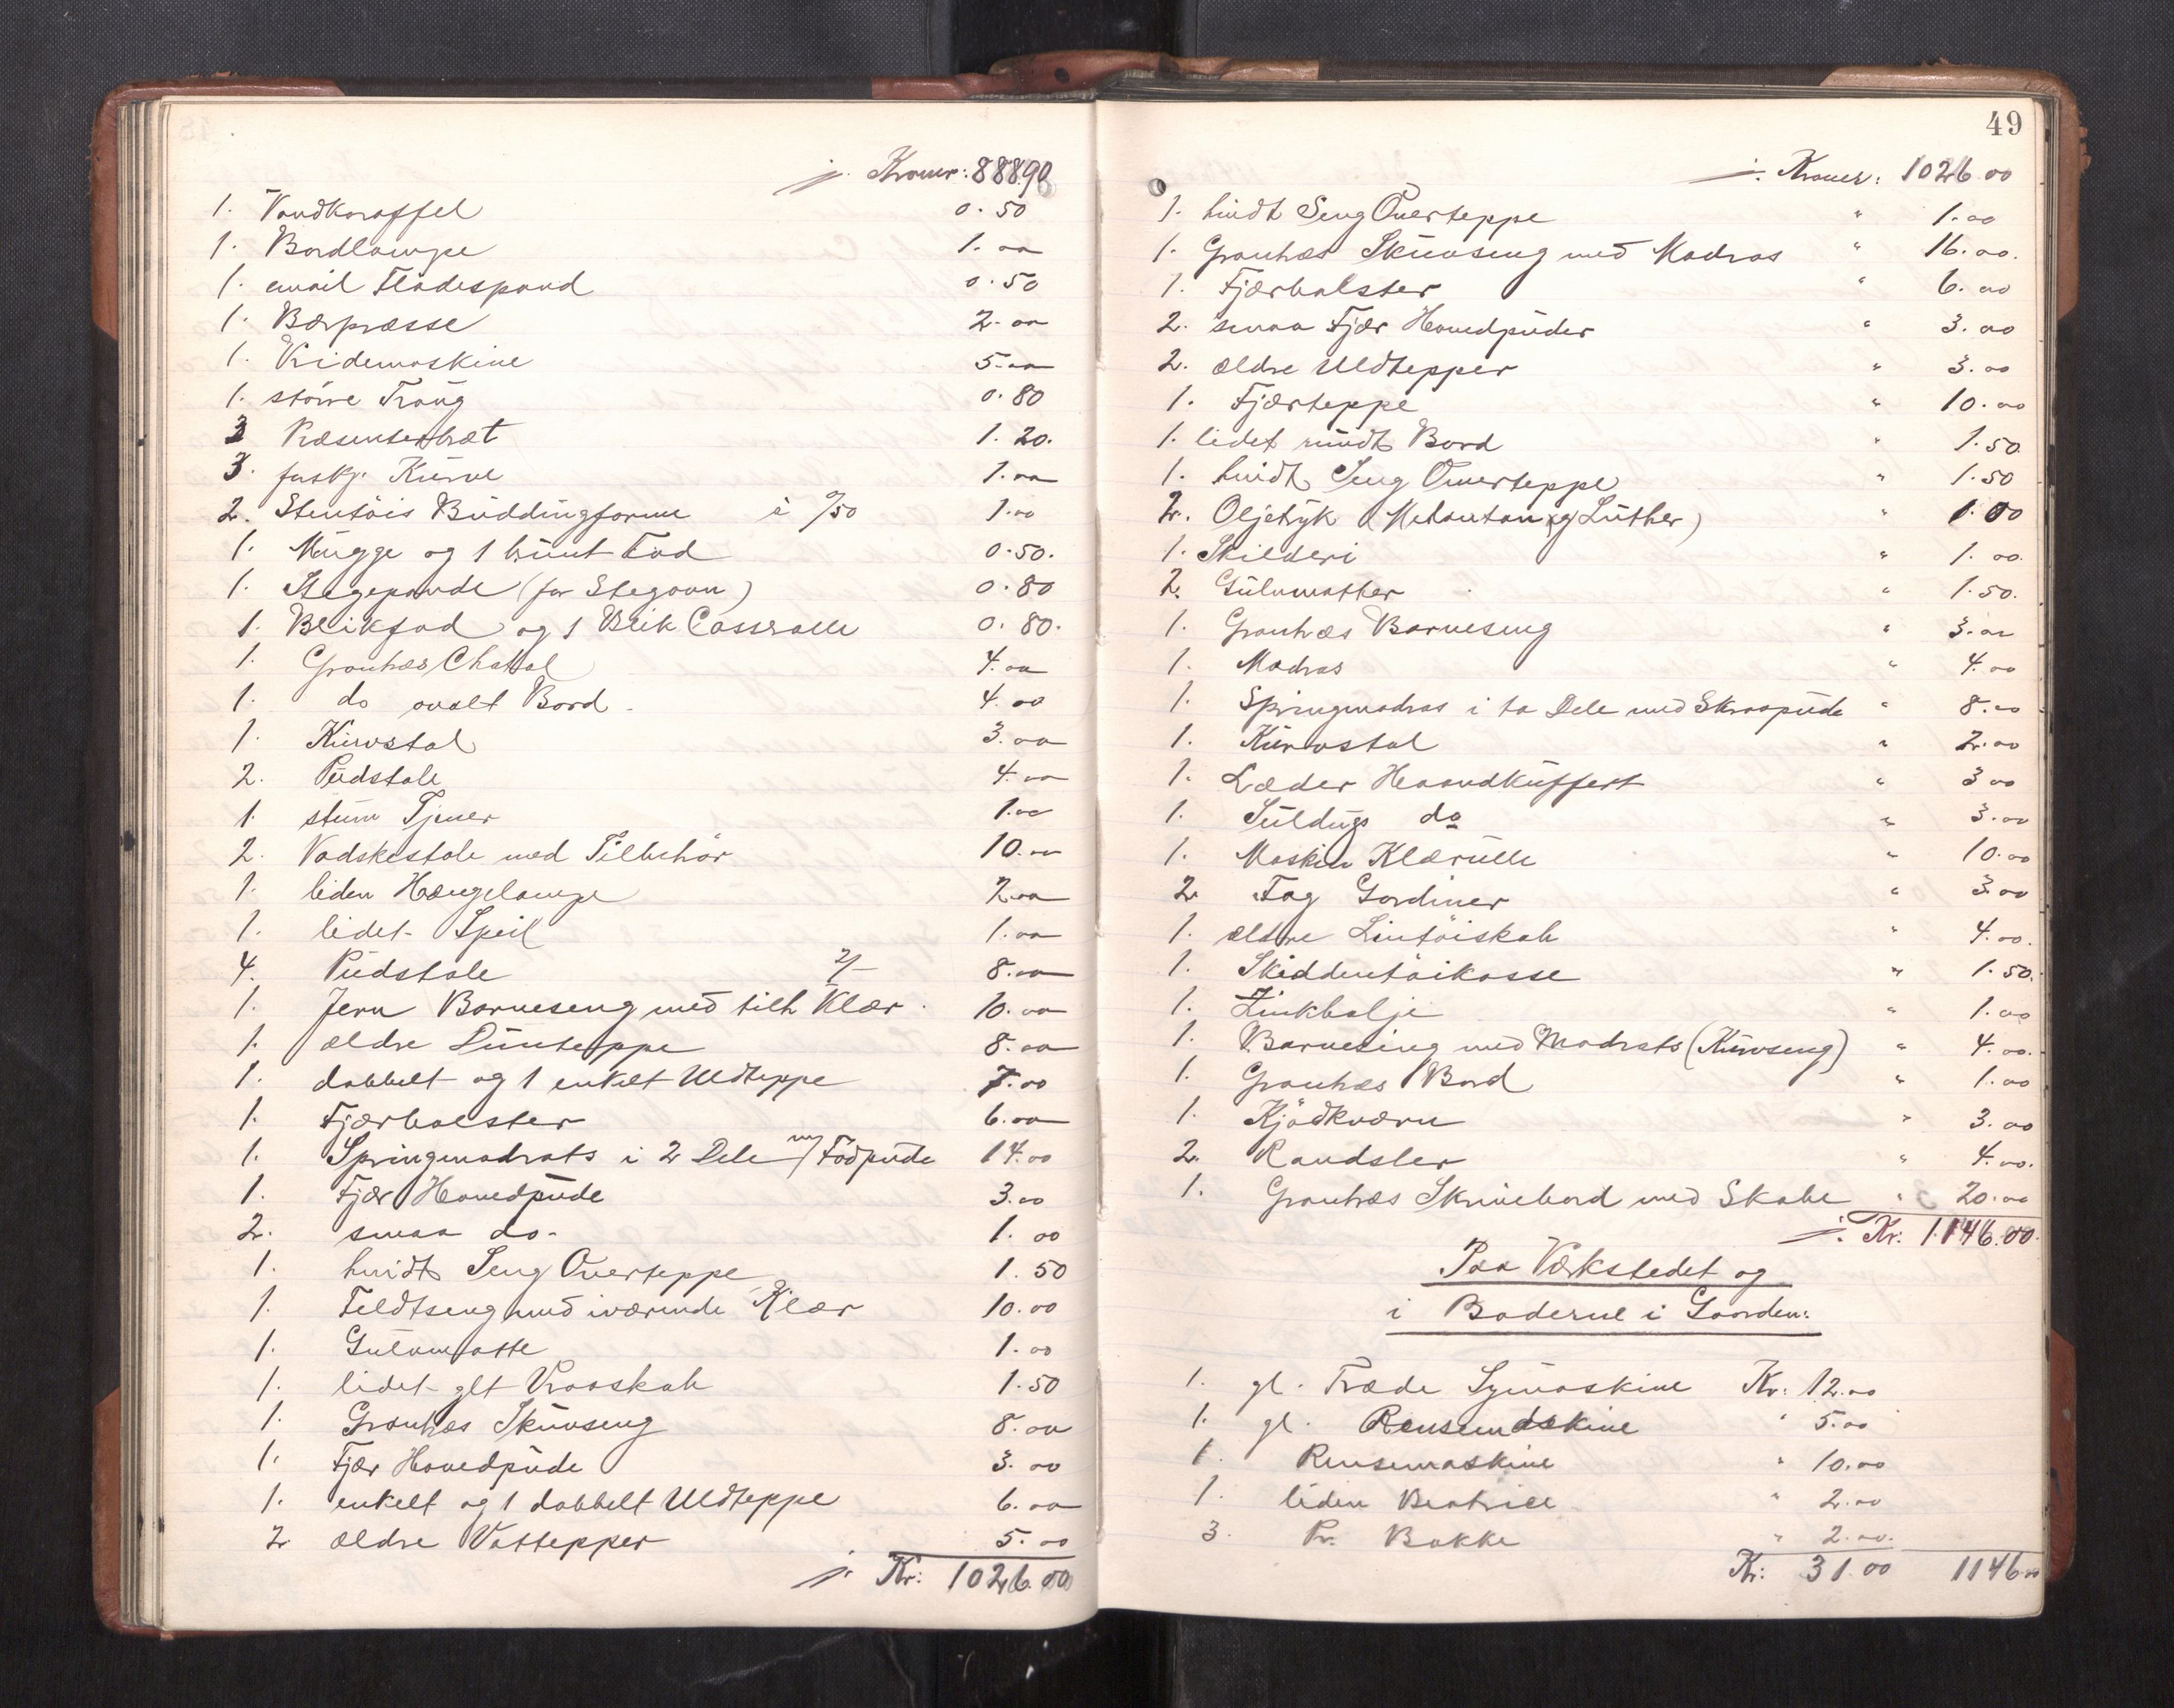 Kroner: 888.90
1. Vandkaraffel 0.50
1. Bordlampe 1.00
1. email Flødespand 0.50
1. Bærpresse 2.00
1. Vridemaskine 5.00
1. större Traug 0.80
3 Præsenterbræt 1.20.
3. forskj. Kurve 1.00
2. Stentöis Buddingforme à /50 1.00
1. Mugge og 1 brunt Fad 0.50.
1. Stegepande (for Stegeovn) 0.80
1. Blikfad og 1 Blik Casserolle 0.80.
1. Grantræs Chatol 4.00
1. do ovalt Bord. 4.00
1. Kurvstol 3.00
2. Pudstole 4.00
1. stum Tjener 1.00
2. Vadskestole med Tilbehör 10.00
1. liden Hængelampe 2.00
1. lidet Speil 1.00
4. Pudstole 2/- 8.00
1. Jern Barneseng med tilh Klær. 10.00
1. ældre Dunteppe 8.00
1. dobbelt og 1 enkelt Uldteppe 7.00
1. Fjærbolster 6.00
1. Springmadrats i 2 Dele m/ Fodpude 14.00
1. Fjær Hovedpude 3.00
2. smaa do. 1.00
1. hvidt Seng Overteppe 1.50
1. Feldtseng med iværende Klær 10.00
1. Gulvmatte 1.00
1. lidet glt Vraaskab 1.50
1. Grantræs Skuvseng 8.00
1. Fjær Hovedpude 3.00
1. enkelt og 1 dobbelt Uldteppe 6.00
2 ældre Vattepper 5.00
Kr: 1026.00
49
Kroner: 1026.00
1. hvidt Seng Overteppe " 1.00
1. Grantræs Skuvseng med Madras " 16.00.
1. Fjærbolster " 6.00
2. smaa Fjær Hovedpuder " 3.00
2. ældre Uldtepper " 3.00
1. Fjærteppe " 10.00
1. lidet rundt Bord " 1.50
1. hvidt Seng Overteppe " 1.50
2. Oljetryk (Melanton og Luther) " 1.00
1. Skilderi " 1.00.
2. Gulvmatter " 1.50.
1. Grantræs Barneseng " 3.00
1. Madras " 4.00
1. Springmadras i to Dele med Skraapude " 8.00
1. Kurvstol " 2.00
1. Læder Haandkuffert " 3.00
1. Seildugs do " 3.00
1. Maskin Klærulle " 10.00
2 Fag Gardiner " 3.00
1. ældre Lintöiskab " 4.00.
1. Skiddentöikasse " 1.50.
1. Zinkbalje " 1.00
1. Barneseng med Madrats (Kurvseng) " 4.00.
1. Grantræs Bord " 1.00
1. Kjödkværn " 3.00
2. Randsler " 4.00.
1. Grantræs Skrivebord med Skabe " 20.00
Kr: 1146.00.
Paa Værkstedet og
i Boderne i Gaarden:
1. gl. Træde Symaskine Kr: 12.00
1. gl. Rensemaskine " 5.00
1. Rensemaskine " 10.00
1. liden Beatrice " 2.00
3. Pr. Bukke " 2.00.
Kr: 31.00 1146.00